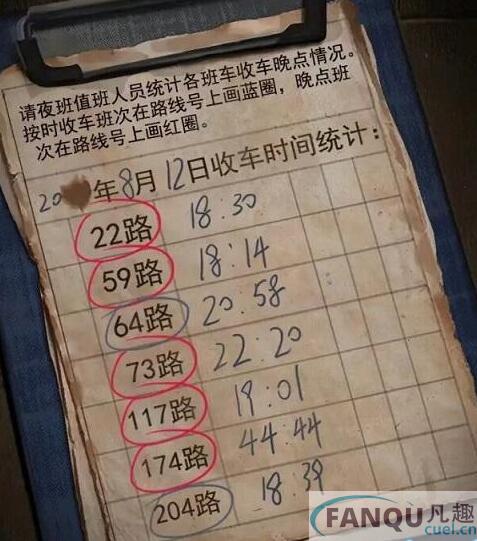 请夜班值班人员统计各班车收车晚点情况。
按时收车班次在路线号上画蓝圈，晚点班
次在路线号上画红圈。
20 年8月12日收车时间统计：
22路 18:30
59路 18:14
64路 20:58
73路 22:20
117路 19:01
174路 44:44
204路 18:39
FANQU凡趣
cuel.cn